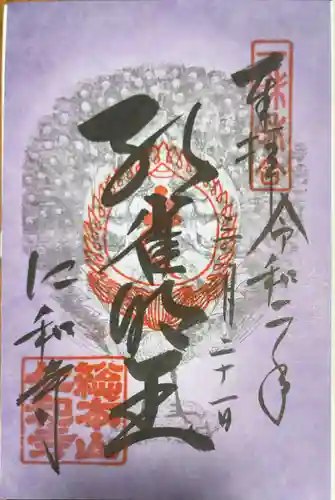 奉拝
令和二年
二月二十一日
孔雀明王
仁和寺
総本山
仁和寺